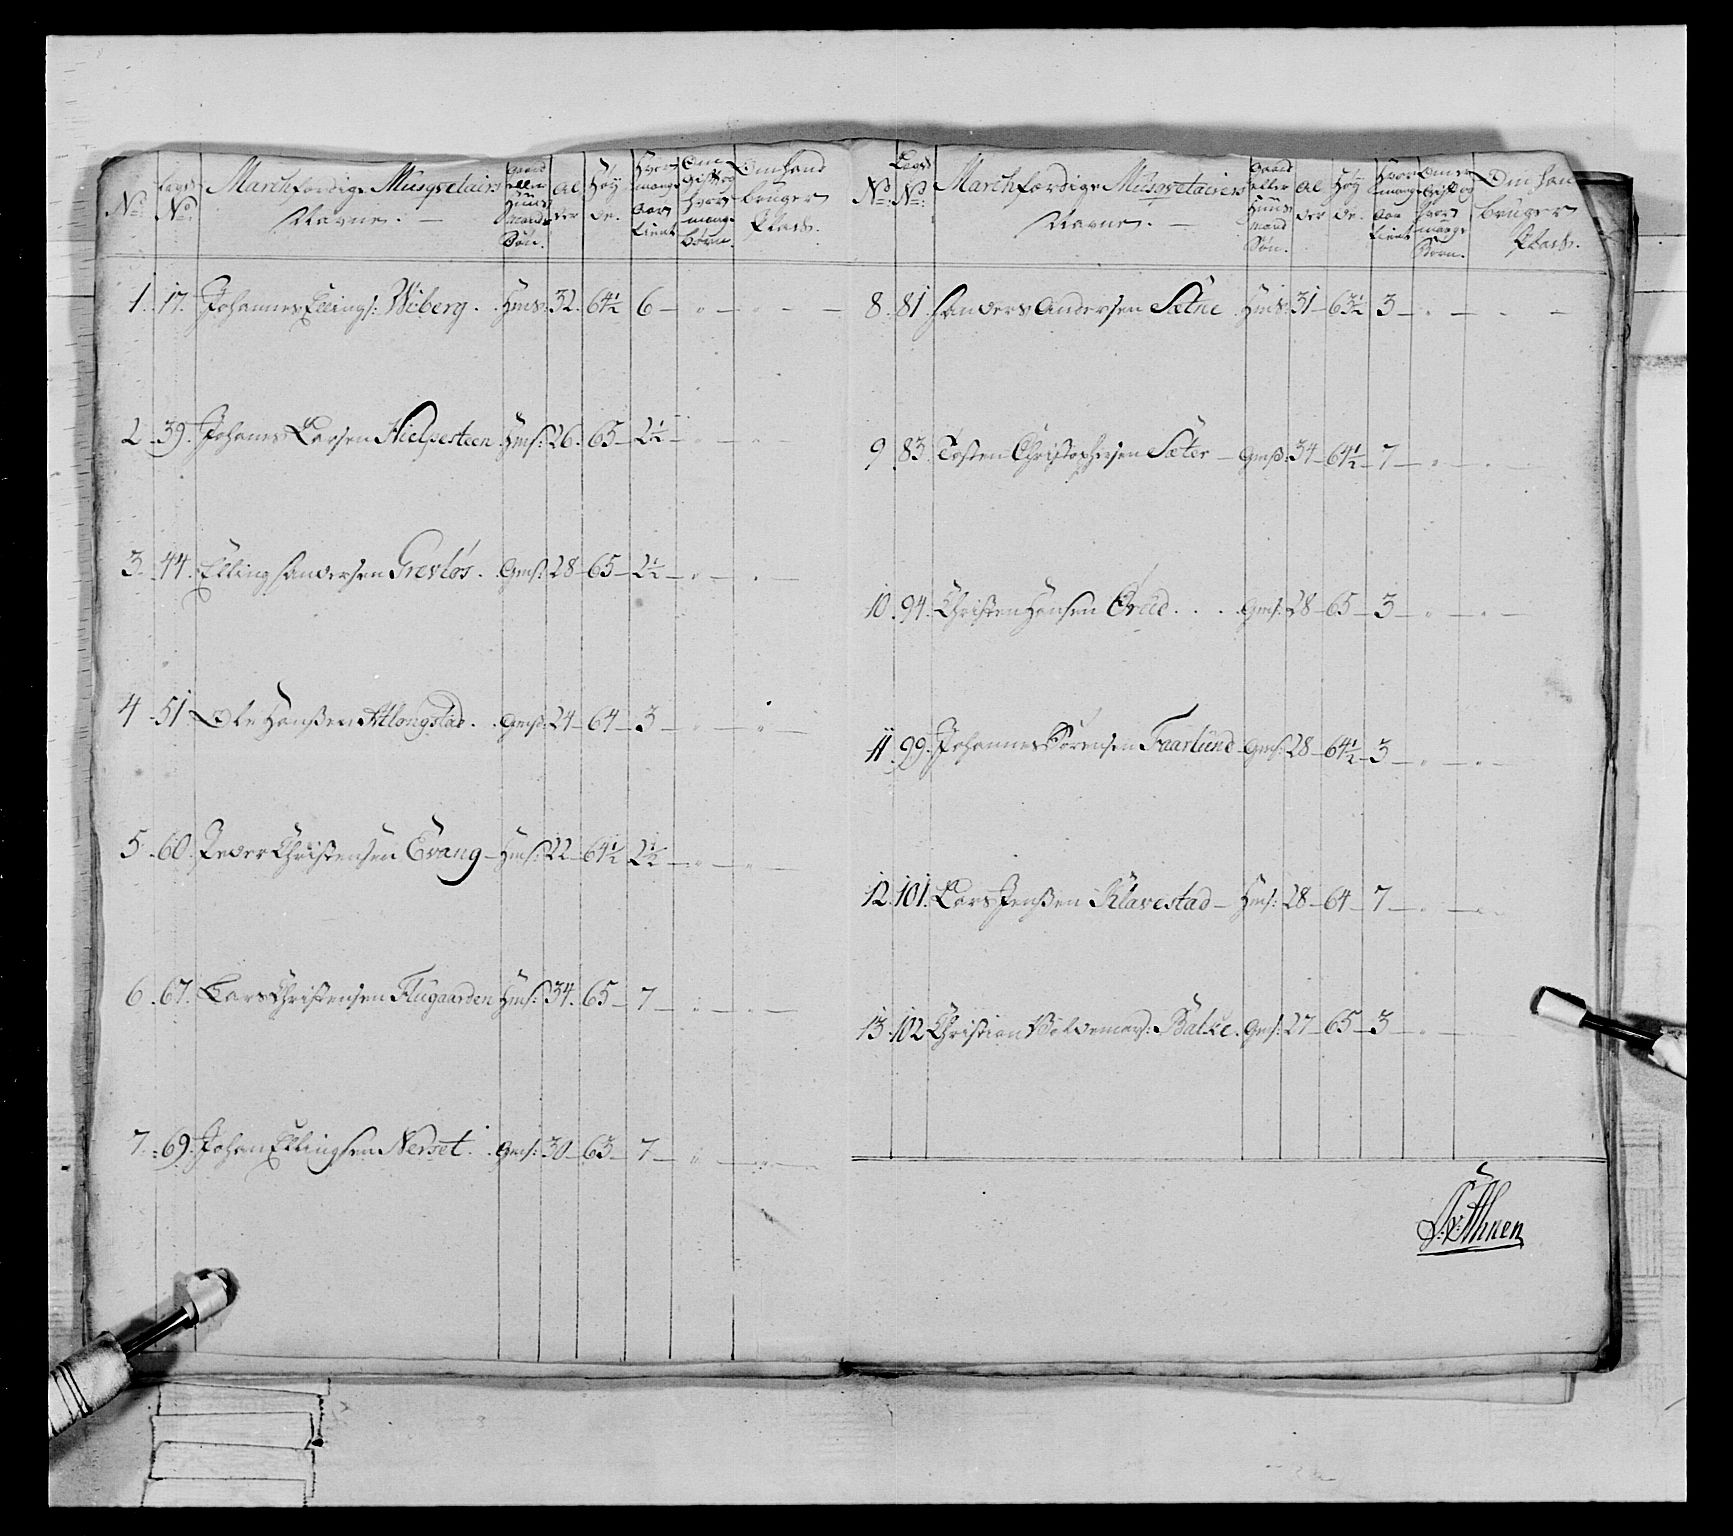 No: Legds No: Marchfærdige Musqvetairs Navne. Gaard eller Huus mands Søn. Al der Høy de. Hvor mange Aar tient Om Gift og hvor mange børn. Om hand bruger Plads.
1. 17. Johannes Ellings: Wiberg. Hmds: 32. 64½ 6 — " — " — —
2. 39. Johannes Larsen Hielpesteen Hms: 26. 65 — 2½ — " — "
3. 44. Elling Andersen Grevløs. Gms: 28 — 65 — 2½ — " — " —
4. 51 Ole Hanßen Alongstad. Gmsß: 24 — 64 — 3 — " — " —
5. 60. Peder Christensen Evang — Hms: 22 — 64½ 2½ — " — " —
6. 67. Lars Christensen Flugaarden Hms: 34. 65 — 7 — " — " —
7. 69. Johan Ellingsen Nerset. Gms: 30 — 63 — 7 — " — " —
No: Legds No: Marchfærdige Musqvetairers Navne. — Gaard eller Huus mand Søn. Al der Høy de. Hvor mange Aar tient Om er Gift og hvor mange Børn. Om han bruger Plads.
8. 81. Anders Andersen Sætne Hmds: 31 — 63½ 3 — " — — —
9. 83. Tosten Christophersen Sæter — Gmsß: 34 — 64½ — 7 — " — " —
10. 94. Christen Hansen Øvud. . . . Gms: 28 — 65 — 3 — " — " —
11. 99. Johannes Sørensen Faarlund. Gms: 28 — 64½ — 3 — " — " —
12. 101. Lars Jenßen Klavestad — Hms: 28 — 64 — 7 — " — "
13. 102 Christian Woldemars: Balke. Gms: 27 — 65 — 3 — " —